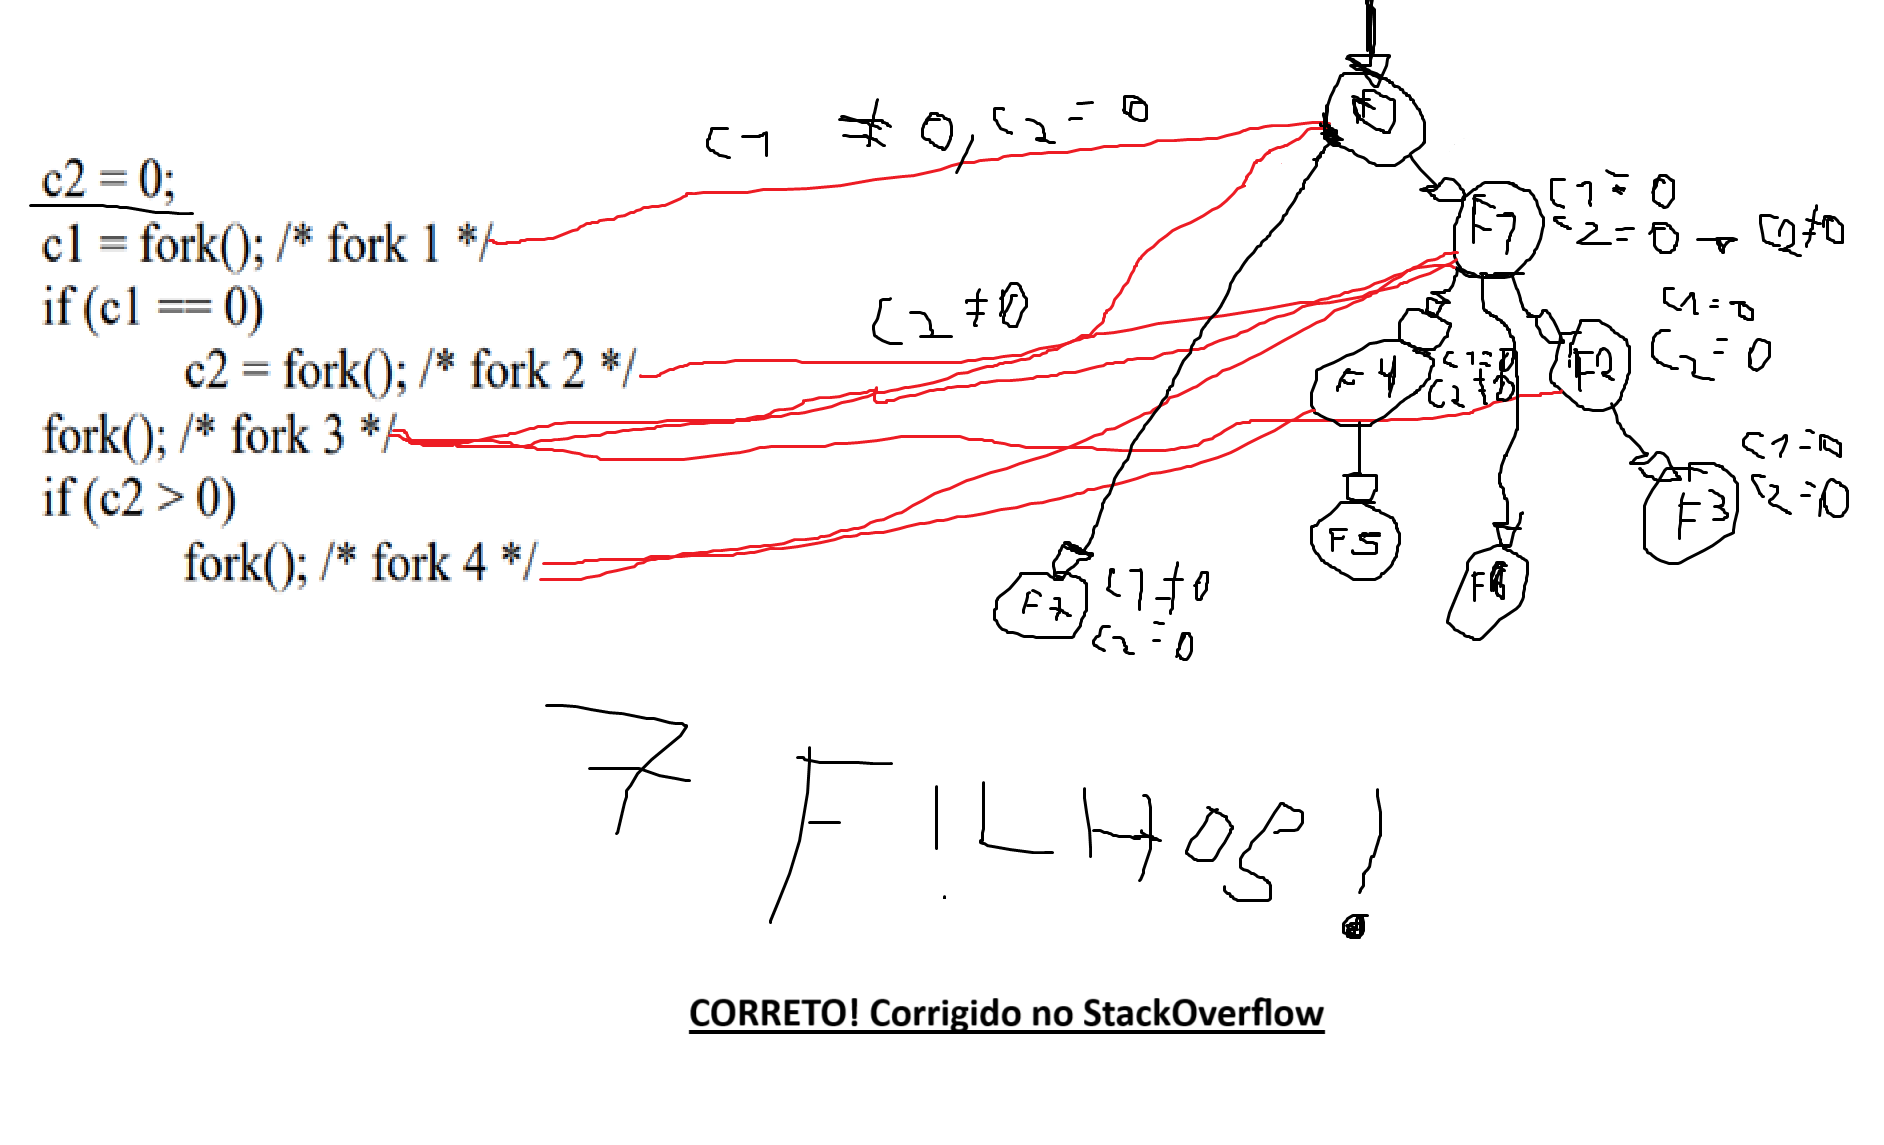 c2 = 0;
c1 = fork(); /* fork 1 */
if (c1 == 0)
c2 = fork(); /* fork 2 */
fork(); /* fork 3 */
if (c2 > 0)
fork(); /* fork 4 */
C1 ≠ 0, C2 = 0
C2 ≠ 0
F1
C1 = 0
C2 = 0 → C2 ≠ 0
F2
C1 = 0
C2 = 0
F4
C1 = 0
C2 ≠ 0
F3
C1 = 0
C2 = 0
F5
F6
F7
C1 ≠ 0
C2 = 0
7 FILHOS!
CORRETO! Corrigido no StackOverflow